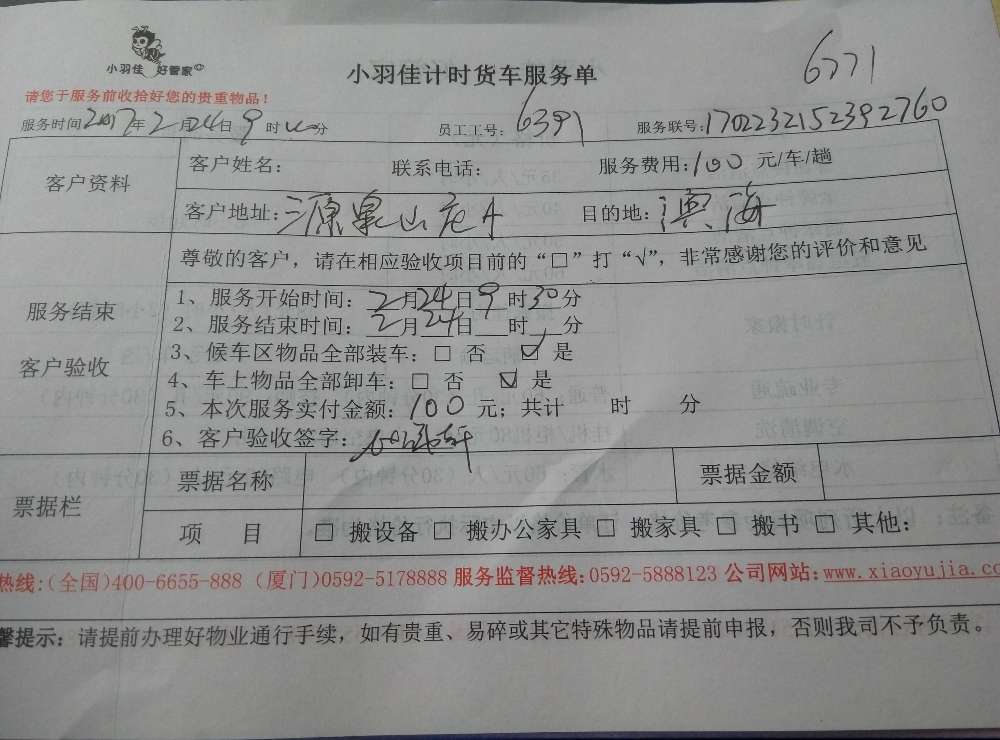 小羽佳 好管家
小羽佳计时货车服务单
6771
请您于服务前收拾好您的贵重物品！
服务时间2017年2月24日9时40分 员工工号：6391 服务联号：1702232152392760
客户资料
客户姓名： 联系电话： 服务费用：100元/车/趟
客户地址：源泉山庄A 目的地：海
尊敬的客户，请在相应验收项目前的“□”打“√”，非常感谢您的评价和意见
服务结束
客户验收
1、服务开始时间：2月24日9时30分
2、服务结束时间：2月24日 时 分
3、候车区物品全部装车：□ 否 ☑ 是
4、车上物品全部卸车：□ 否 ☑ 是
5、本次服务实付金额：100元；共计 时 分
6、客户验收签字：
票据栏
票据名称 票据金额
项 目 □ 搬设备 □ 搬办公家具 □ 搬家具 □ 搬书 □ 其他：
热线：(全国)400-6655-888 (厦门)0592-5178888 服务监督热线：0592-5888123 公司网站：www.xiaoyujia.co
馨提示：请提前办理好物业通行手续，如有贵重、易碎或其它特殊物品请提前申报，否则我司不予负责。